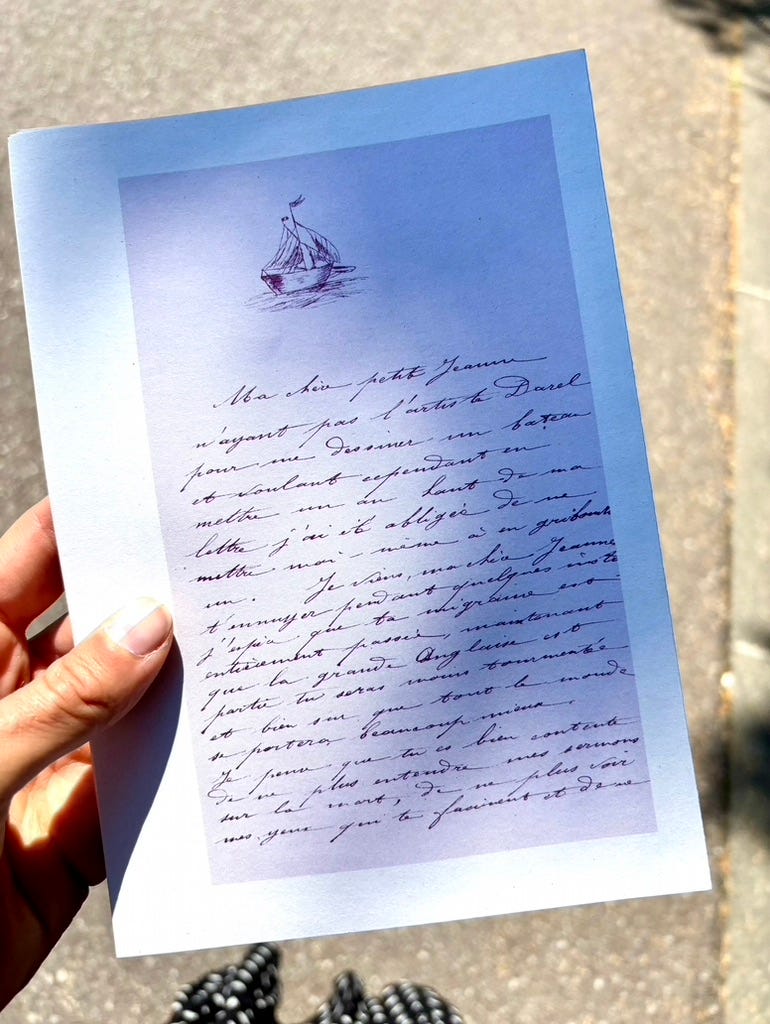 Ma chère petite Jeanne
n'ayant pas l'artiste Darel
pour me dessiner un bateau
et voulant cependant en
mettre un au haut de ma
lettre j'ai été obligée de me
mettre moi-même à en gribouiller
un. Je viens, ma chère Jeanne
t'ennuyer pendant quelques inste
j'espère que ta migraine est
entièrement passée, maintenant
que la grande Anglaise est
partie tu seras moins tourmentée
et bien sur que tout le monde
se portera beaucoup mieux.
Je pense que tu es bien contente
de ne plus entendre mes sermons
sur la mort, de ne plus voir
mes yeux qui te fasinent et de ne